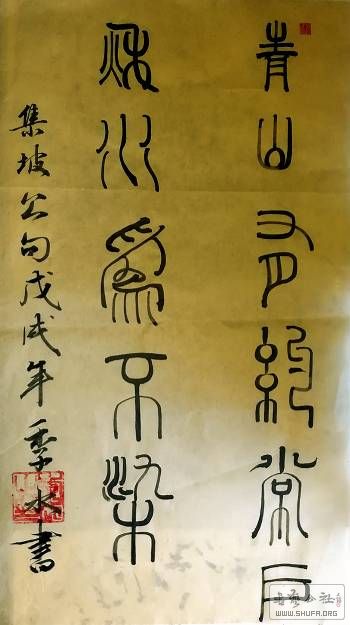 青山有約常戶
秋水為不染
集坡公句戊戌年季水書
书艺公社
WWW.SHUFA.ORG